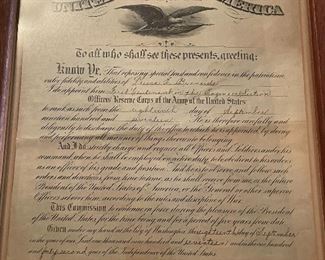 UNITED STATES OF AMERICA
To all who shall see these presents, greeting:
Know Ye, That reposing special trust and confidence in the patriotism,
valor, fidelity and abilities of
I do appoint him First Lieutenant in the Engineer Section
Officers' Reserve Corps of the Army of the United States
to rank as such from the eighteenth day of September
nineteen hundred and seventeen. He is therefore carefully and
diligently to discharge the duty of the office to which he is appointed by doing
and performing all manner of things thereunto belonging.
And I do strictly charge and require all Officers and Soldiers under his
command when he shall be employed on active duty to be obedient to his orders
as an officer of his grade and position. And he is to observe and follow such
orders and directions, from time to time, as he shall receive from me, or the future
President of the United States of America, or the General or other superior
Officers set over him, according to the rules and discipline of War.
This Commission to continue in force during the pleasure of the President
of the United States, for the time being and for a period of five years from date.
Given under my hand at the City of Washington this eighteenth day of September
in the year of our Lord one thousand nine hundred and seventeen and in the one hundred
and forty-second year of the Independence of the United States.